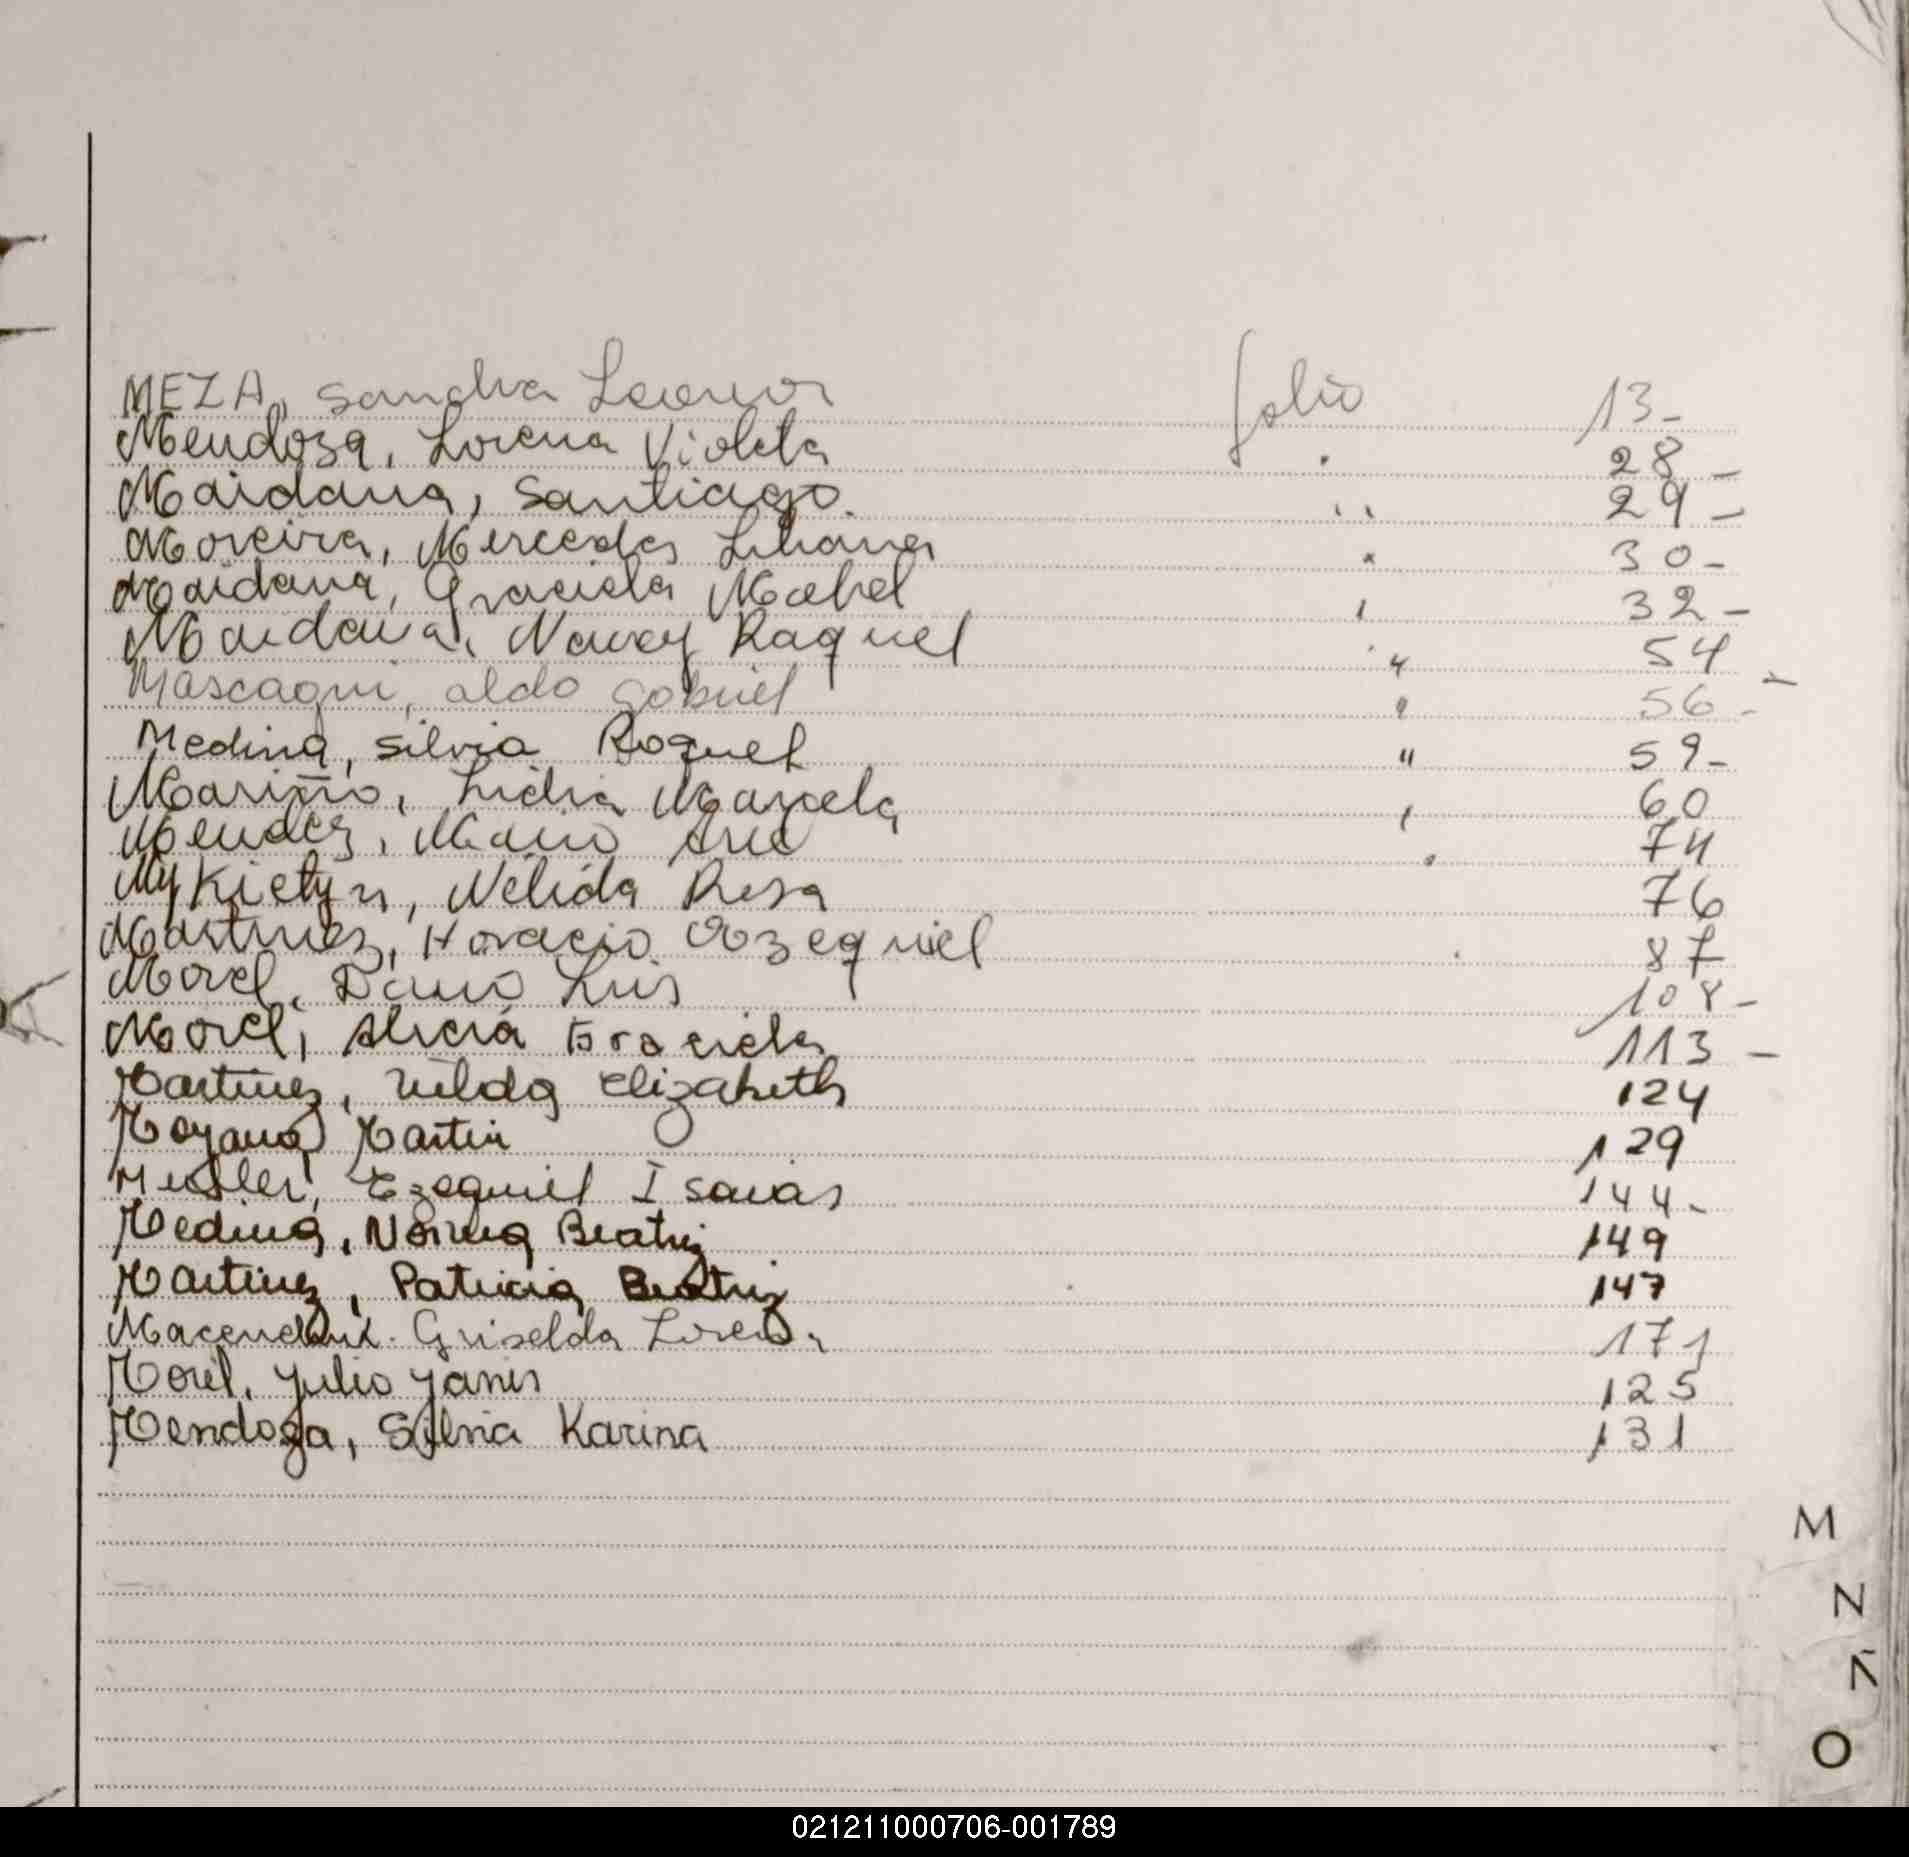 MEZA, Sandra Leonor folio 13-
Mendoza, Lorena Violeta " 28-
Maidana, Santiago. " 29-
Moreira, Mercedes Liliana " 30-
Maidana, Graciela Mabel " 32-
Maidana, Nancy Raquel " 54-
Mascagni, aldo gabriel " 56-
Medina, Silvia Raquel " 59-
Mariño, Lidia Marcela " 60
Mendez, Mario " 74
Mykietyn, Nélida Rosa 76
Martinez, Horacio 87
Morel, Luis 108-
Morel, Alicia Graciela 113-
Martinez, Elizabeth 124
Moyano, Martin 129
Ezequiel Isaias 144-
Medina, Norma Beatriz 149
Martinez, Patricia Beatriz 147
Griselda Lorena 171
Morel, Julio 125
Mendoza, Silvia Karina 131
M
N
Ñ
O
021211000706-001789